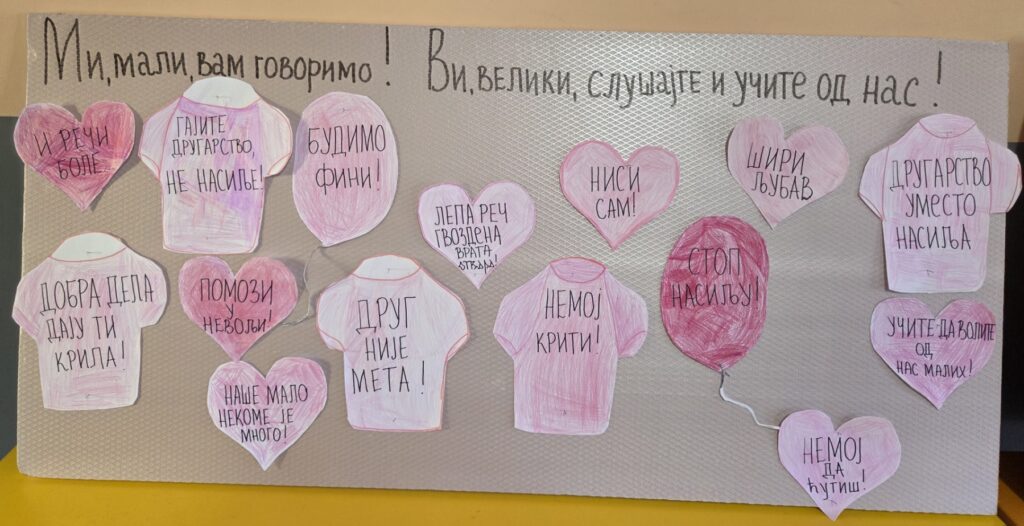 Ми, мали, вам говоримо! Ви, велики, слушајте и учите од нас!
И РЕЧИ
БОЛЕ
ГАЈИТЕ
ДРУГАРСТВО,
НЕ НАСИЉЕ!
БУДИМО
ФИНИ!
ЛЕПА РЕЧ
ГВОЗДЕНА
ВРАТА
ОТВАРА!
НИСИ
САМ!
ШИРИ
ЉУБАВ
ДРУГАРСТВО
УМЕСТО
НАСИЉА
ДОБРА ДЕЛА
ДАЈУ ТИ
КРИЛА!
ПОМОЗИ
У
НЕВОЉИ!
ДРУГ
НИЈЕ
МЕТА!
НЕМОЈ
КРИТИ!
СТОП
НАСИЉУ!
УЧИТЕ ДА ВОЛИТЕ
ОД
НАС МАЛИХ!
НАШЕ МАЛО
НЕКОМЕ ЈЕ
МНОГО!
НЕМОЈ
ДА
ЋУТИШ!